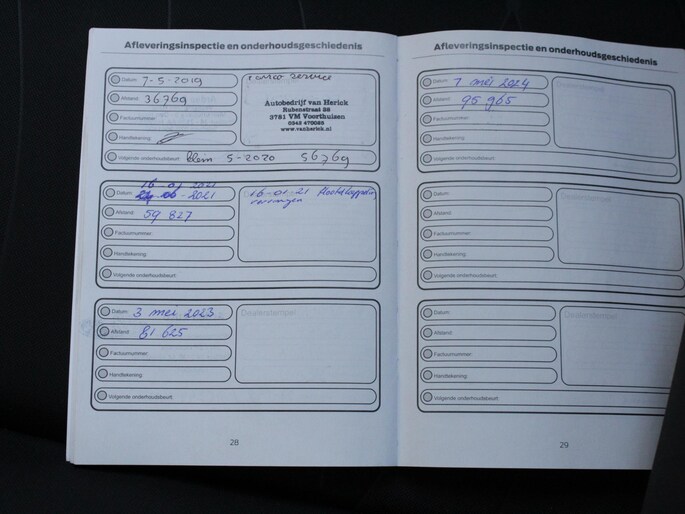 Afleveringsinspectie en onderhoudsgeschiedenis
Datum: 7-5-2019
Afstand: 36769
Factuurnummer:
Handtekening:
Volgende onderhoudsbeurt: klein 5-2020 56769
service
Autobedrijf van Herick
Rubensstraat 38
3781 VM Voorthuizen
0342 479082
www.vanherick.nl
16-01 2021
Datum: 2021
Afstand: 59 827
Factuurnummer:
Handtekening:
Volgende onderhoudsbeurt:
16-01-21
vervangen
Datum: 3 mei 2023
Afstand: 81 625
Factuurnummer:
Handtekening:
Volgende onderhoudsbeurt:
Dealerstempel
28
Afleveringsinspectie en onderhoudsgeschiedenis
Datum: 7 mei 2024
Afstand: 95 965
Factuurnummer:
Handtekening:
Volgende onderhoudsbeurt:
Datum:
Afstand:
Factuurnummer:
Handtekening:
Volgende onderhoudsbeurt:
Datum:
Afstand:
Factuurnummer:
Handtekening:
Volgende onderhoudsbeurt:
Dealerstempel
29